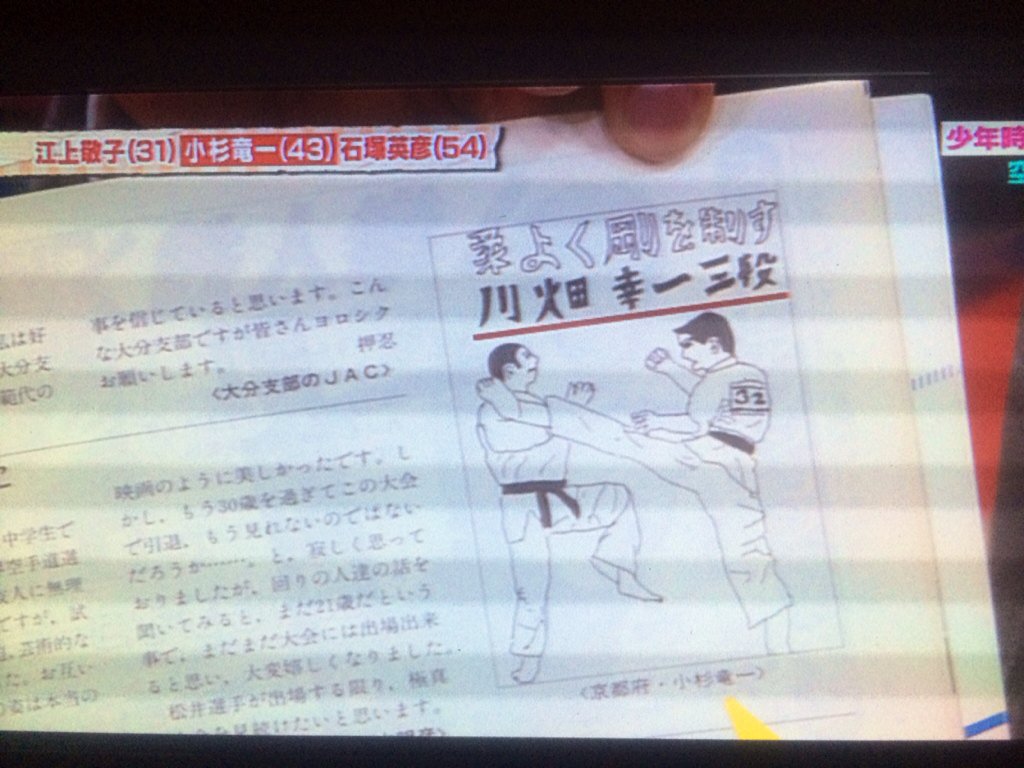 江上敬子(31) 小杉竜一(43) 石塚英彦(54)
少年時
空
柔よく剛を制す
川畑幸一三段
32
〈京都府・小杉竜一〉
私は好
大分支
範代の
事を信じていると思います。こん
な大分支部ですが皆さんヨロシク
お願いします。 押忍
〈大分支部のJAC〉
中学生で
空手道選
人に無理
ですが、試
芸術的な
た。お互い
姿は本当の
映画のように美しかったです。し
かし、もう30歳を過ぎてこの大会
で引退、もう見れないのではない
だろうか……。と、寂しく思って
おりましたが、回りの人達の話を
聞いてみると、まだ21歳だという
事で、まだまだ大会には出場出来
ると思い、大変嬉しくなりました。
松井選手が出場する限り、極真
を見続けたいと思います。